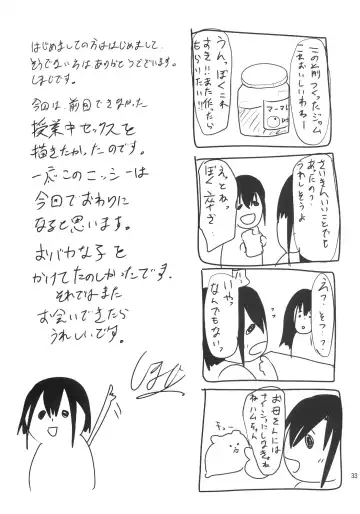 はじめましての方ははじめまして、
そうでない方はありがとうございます。
しまじです。
今回は、前回できなかった
授業中セックスを
描きたかったのです。
一応このニッシーは
今回でおわりに
なると思います。
おバカな子を
かけてたのしかったです。
それではまた
お会いできたら
うれしいです。
この前つくったジャム
これおいしいわねー
うんっぼくこれ
すき!!また作ったら
もらいたい!!
マーマレ
さいきんいいことでも
あったの?
うれしそうよ
えっとねっ
ぼく
えっ?そつ?
いやっ
なんでもないっ
お母さんには
ナイショにしなきゃね
ねハムちゃん
チュー
33